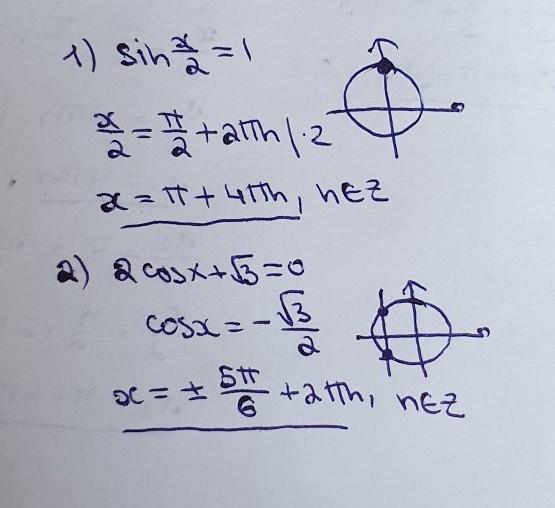 1) sin x/2 = 1
x/2 = π/2 + 2πn |·2
x = π + 4πn, n∈Z
2) 2cosx+√3=0
cosx = -√3/2
x = ± 5π/6 + 2πn, n∈Z